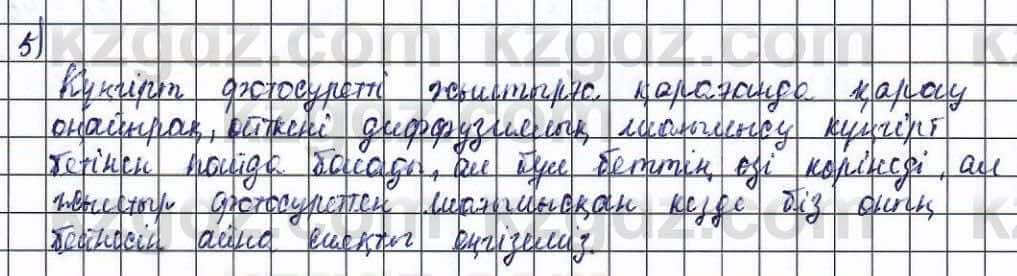 5)
Күңгірт фотосуретті жылтырға қарағанда қарау
оңайырақ, өйткені диффузиялық шағылысу күңгірт
бетінен пайда болады, ал бұл беттің өзі көрінеді, ал
жылтыр фотосуреттен шағылысқан кезде біз оның
бейнесін айна сияқты
kzgdz.com